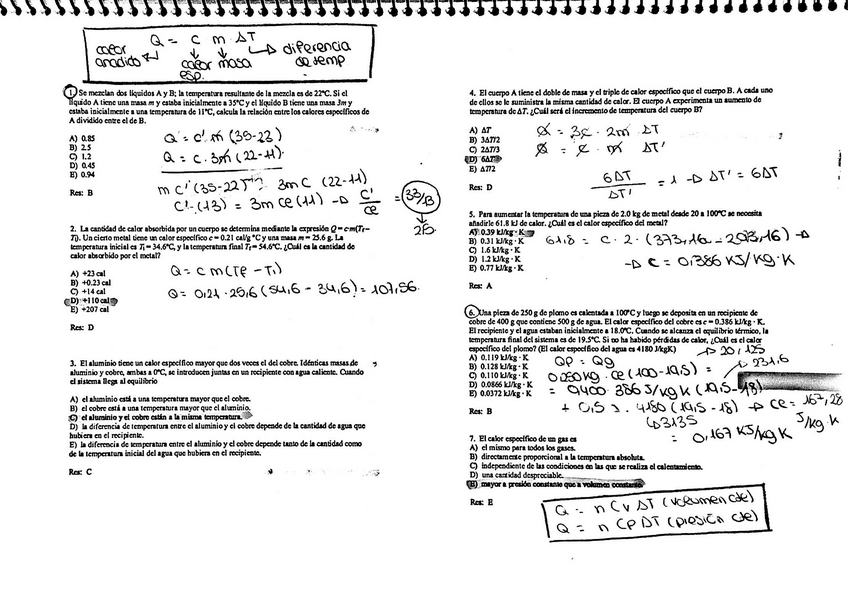 Q = c m ΔT
calor añadido
calor esp.
masa
diferencia de temp
1. Se mezclan dos líquidos A y B; la temperatura resultante de la mezcla es de 22ºC. Si el
líquido A tiene una masa m y estaba inicialmente a 35ºC y el líquido B tiene una masa 3m y
estaba inicialmente a una temperatura de 11ºC, calcula la relación entre los calores específicos de
A dividido entre el de B.
A) 0.85
B) 2.5
C) 1.2
D) 0.45
E) 0.94
Res: B
Q = c' m (35-22)
Q = c. 3m (22-11)
m c' (35-22) = 3m c (22-11)
c' (13) = 3m ce (11) → c'/ce = 33/13
2'5
2. La cantidad de calor absorbida por un cuerpo se determina mediante la expresión Q = c·m(Tf–
Ti). Un cierto metal tiene un calor específico c = 0.21 cal/g ºC y una masa m = 25.6 g. La
temperatura inicial es Ti = 34.6ºC, y la temperatura final Tf = 54.6ºC. ¿Cuál es la cantidad de
calor absorbido por el metal?
A) +23 cal
B) +0.23 cal
C) +14 cal
D) +110 cal
E) +207 cal
Res: D
Q = c m (Tf - Ti)
Q = 0,21 · 25,6 (54,6 - 34,6) = 107,56.
3. El aluminio tiene un calor específico mayor que dos veces el del cobre. Idénticas masas de
aluminio y cobre, ambas a 0ºC, se introducen juntas en un recipiente con agua caliente. Cuando
el sistema llega al equilibrio
A) el aluminio está a una temperatura mayor que el cobre.
B) el cobre está a una temperatura mayor que el aluminio.
C) el aluminio y el cobre están a la misma temperatura.
D) la diferencia de temperatura entre el aluminio y el cobre depende de la cantidad de agua que
hubiera en el recipiente.
E) la diferencia de temperatura entre el aluminio y el cobre depende tanto de la cantidad como
de la temperatura inicial del agua que hubiera en el recipiente.
Res: C
4. El cuerpo A tiene el doble de masa y el triple de calor específico que el cuerpo B. A cada uno
de ellos se le suministra la misma cantidad de calor. El cuerpo A experimenta un aumento de
temperatura de ΔT. ¿Cuál será el incremento de temperatura del cuerpo B?
A) ΔT
B) 3ΔT/2
C) 2ΔT/3
D) 6ΔT
E) ΔT/2
Res: D
Q = 3c · 2m ΔT
Q = c · m ΔT'
6ΔT/ΔT' = 1 → ΔT' = 6ΔT
5. Para aumentar la temperatura de una pieza de 2.0 kg de metal desde 20 a 100ºC se necesita
añadirle 61.8 kJ de calor. ¿Cuál es el calor específico del metal?
A) 0.39 kJ/kg · K
B) 0.31 kJ/kg · K
C) 1.6 kJ/kg · K
D) 1.2 kJ/kg · K
E) 0.77 kJ/kg · K
Res: A
61,8 = c · 2 · (373,16 - 293,16) →
→ c = 0,386 KJ/Kg·K
6. Una pieza de 250 g de plomo es calentada a 100ºC y luego se deposita en un recipiente de
cobre de 400 g que contiene 500 g de agua. El calor específico del cobre es c = 0.386 kJ/kg · K.
El recipiente y el agua estaban inicialmente a 18.0ºC. Cuando se alcanza el equilibrio térmico, la
temperatura final del sistema es de 19.5ºC. Si no ha habido pérdidas de calor, ¿Cuál es el calor
específico del plomo? (El calor específico del agua es 4180 J/kgK)
A) 0.119 kJ/kg · K
B) 0.128 kJ/kg · K
C) 0.110 kJ/kg · K
D) 0.0866 kJ/kg · K
E) 0.0372 kJ/kg · K
Res: B
QP = Qg
→ 20,125
0,250 Kg · ce (100-19,5) =
→ 231,6
= 0,400 · 386 J/Kg K (19,5-18)
+ 0,5 · 4180 (19,5-18) → ce = 167,28 J/Kg·K
→ 3135
= 0,167 KJ/Kg K
7. El calor específico de un gas es
A) el mismo para todos los gases.
B) directamente proporcional a la temperatura absoluta.
C) independiente de las condiciones en las que se realiza el calentamiento.
D) una cantidad despreciable.
E) mayor a presión constante que a volumen constante.
Res: E
Q = n Cv ΔT (volumen cte)
Q = n Cp ΔT (presión cte)